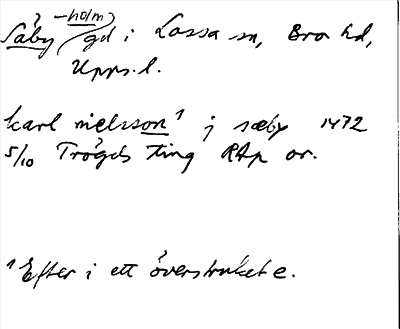 -holm
Såby gd i Lossa sn, Bro hd,
Upps. l.
karl nielsson¹ j sæby 1472
5/10 Trögds ting RAp or.
¹ Efter i ett överstruket e.